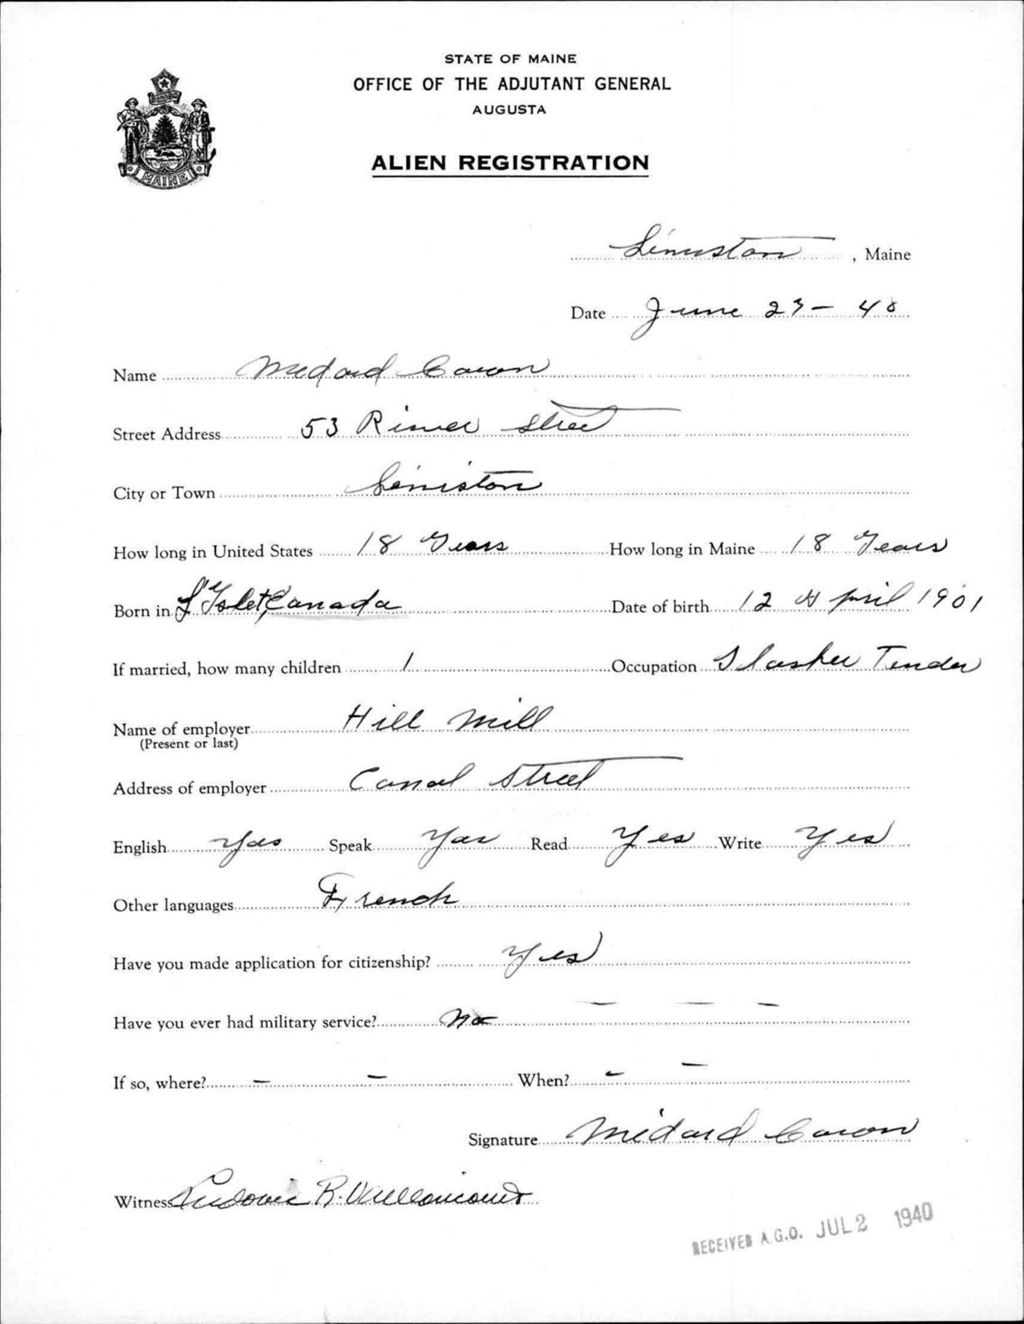 STATE OF MAINE
OFFICE OF THE ADJUTANT GENERAL
AUGUSTA
ALIEN REGISTRATION
MAINE
Lewiston, Maine
Date June 29 - 40
Name Medard Caron
Street Address 53 River Street
City or Town Lewiston
How long in United States 18 Years How long in Maine 18 Years
Born in L'Islet, Canada Date of birth 12 April 1901
If married, how many children 1 Occupation Slasher Tender
Name of employer Hill Mill
(Present or last)
Address of employer Canal Street
English Yes Speak Yes Read Yes Write Yes
Other languages French
Have you made application for citizenship? Yes
Have you ever had military service? No - - -
If so, where? - - When? - -
Signature Médard Caron
Witness Ludovic R. Vaillancourt
RECEIVED A.G.O. JUL 2 1940